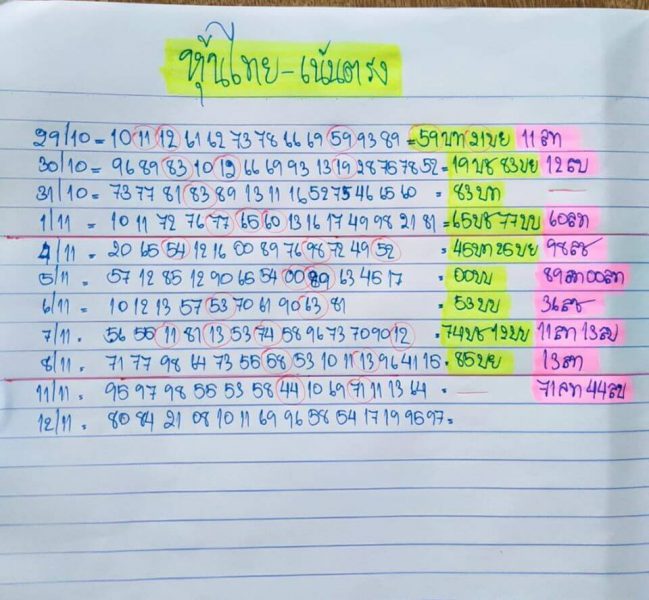 หุ้นไทย-เน้นตรง
29/10 = 10 11 12 61 62 73 78 66 69 59 93 89 = 59บท 21บย 11 ลท
30/10 = 96 89 83 10 12 66 69 93 13 19 28 75 78 52 = 19บช 83บย 12 ลบ
31/10 = 73 77 81 83 89 13 11 16 52 75 46 65 60 = 83บท —
1/11 = 10 11 72 76 77 65 60 13 16 17 49 98 21 81 = 65บช 77บบ 60ลท
4/11 = 20 65 54 12 16 00 89 76 98 72 49 52 = 45บท 25บย 98ลช
5/11 = 57 12 85 12 90 65 54 00 89 63 45 17 = 00บบ 89ลท 00ลท
6/11 = 10 12 13 57 53 70 61 90 63 81 = 53บบ 36ลช
7/11 = 56 55 11 81 13 53 74 58 96 73 70 90 12 = 74บช 12บบ 11ลท 13ลบ
8/11 = 71 77 98 64 73 55 58 53 10 11 13 96 41 15 = 85บย 13ลท
11/11 = 95 97 98 55 53 58 44 10 69 71 11 13 64 = — 71ลท 44ลบ
12/11 = 80 84 21 08 10 11 69 96 58 54 17 19 95 97 =